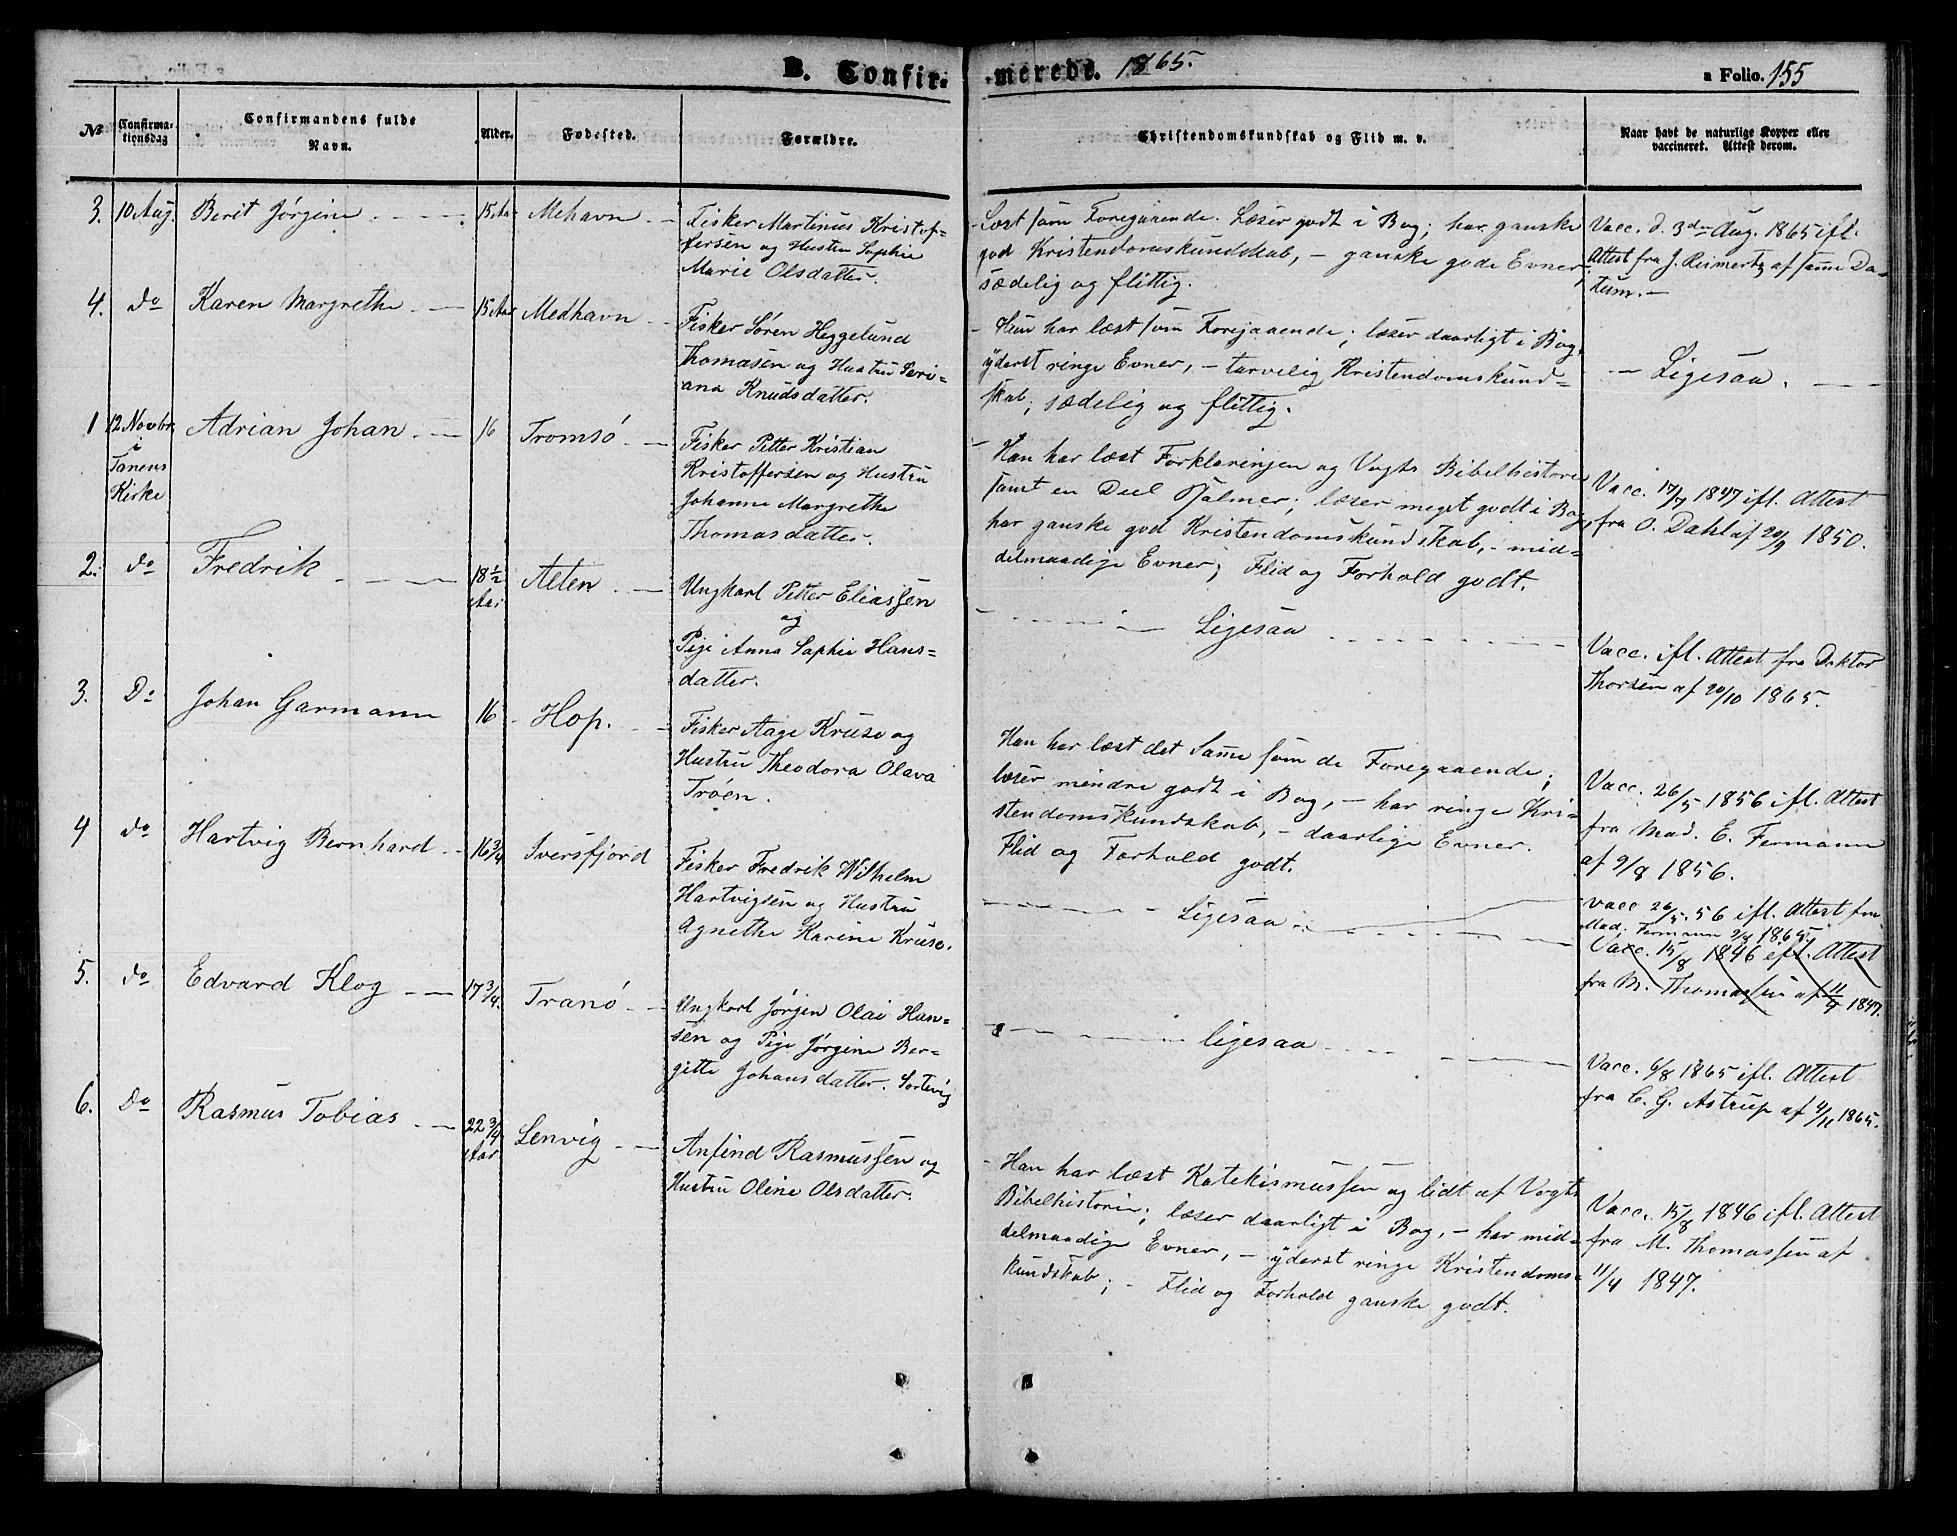 B. Confir-
merede. 1865.
a Folio. 155
No
Confirma-
tionsdag
Confirmandens fulde
Navn.
Alder.
Fødested.
Forældre.
Christendomskundskab og Flid m. v.
Naar havt de naturlige Kopper eller
vaccineret. Attest derom.
3. 10 Aug. Berit Jørgine 15 Aar Mehavn
Fisker Martinus Kristof-
fersen og Hustru Sophie
Marie Olsdatter.
Læst som Foregaaende. Læser godt i Bog; har ganske
god Kristendomskundskab, - ganske gode Evner,
sædelig og flittig.
Vacc. d. 3die Aug. 1865 ifl.
Attest fra J. Reimertz af samme Da-
tum. -
4. do Karen Margrethe 15 Aar Medhavn
Fisker Søren Heggelund
Thomasen og Hustru Seri-
ana Knudsdatter.
- Hun har læst som Foregaaende; læser daarligt i Bog,
yderst ringe Evner, - tarvelig Kristendomskund-
skab; sædelig og flittig.
- Ligesaa. -
1 12 Novbr. Adrian Johan 16 Tromsø
i
Tanens
Kirke
Fisker Petter Kristian
Kristoffersen og Hustru
Johanne Margrethe
Thomasdatter.
- Han har læst Forklaringen og Vogts Bibelhistorie
samt en Deel Psalmer; læser meget godt i Bog,
har ganske god Kristendomskundskab, - mid-
delmaadige Evner; Flid og Forhold godt.
Vacc. 17/7 1847 ifl. Attest
fra O. Dahl af 20/9 1850.
2. do Fredrik 18 1/2 Aar Alten
Ungkarl Petter Eliassen
og
Pige Anna Sophie Hans-
datter.
Ligesaa
Vacc. ifl. Attest fra Doktor
Thorsen af 20/10 1865.
3. Do Johan Garmann 16 Hop.
Fisker Aage Kruse og
Hustru Theodora Olava
Trøen.
Han har læst det Samme som de Foregaaende;
læser mindre godt i Bog, - har ringe Kri-
stendomskundskab, - daarlige Evner.
Flid og Forhold godt.
Vacc. 26/5 1856 ifl. Attest
fra Mad. E. Fermann
af 9/8 1856.
4 do Hartvig Bernhard 16 3/4 Sversfjord
Fisker Fredrik Wilhelm
Hartvigsen og Hustru
Agnethe Karine Kruse.
Ligesaa
vacc 26/5. 56 ifl. Attest fra
Mad. Fermann 9/8 1865.
Vacc. 15/8 1846 efl. Attest
fra M. Thomassen af 11/4 1847.
5. do Edvard Klog 17 3/4. Tranø
Ungkarl Jørgen Olai Han-
sen og Pige Jørgine Ber-
gitte Johansdatter. Sortvig
ligesaa
Vacc. 6/8 1865 ifl. Attest
fra C. G. Astrup af 4/11 1865.
6. Do Rasmus Tobias 22 3/4 Aar Lenvig
Anfind Rasmussen og
Hustru Oline Olsdatter.
- Han har læst Katekismussen og lidt af Vogts
Bibelhistorie; læser daarligt i Bog, - har mid-
delmaadige Evner, - yderst ringe Kristendoms-
kundskab; - Flid og Forhold ganske godt.
Vacc. 15/8 1846 ifl. Attest
fra M. Thomassen af
11/4 1847.